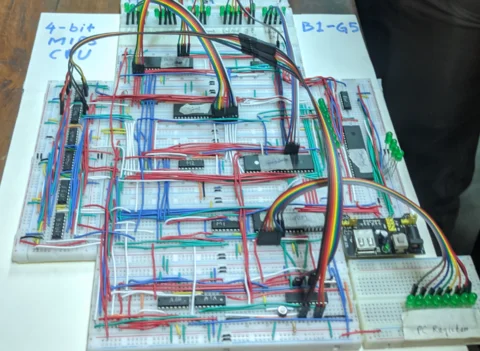 4-bit
MIPS
CPU
B1-G5
PC Register